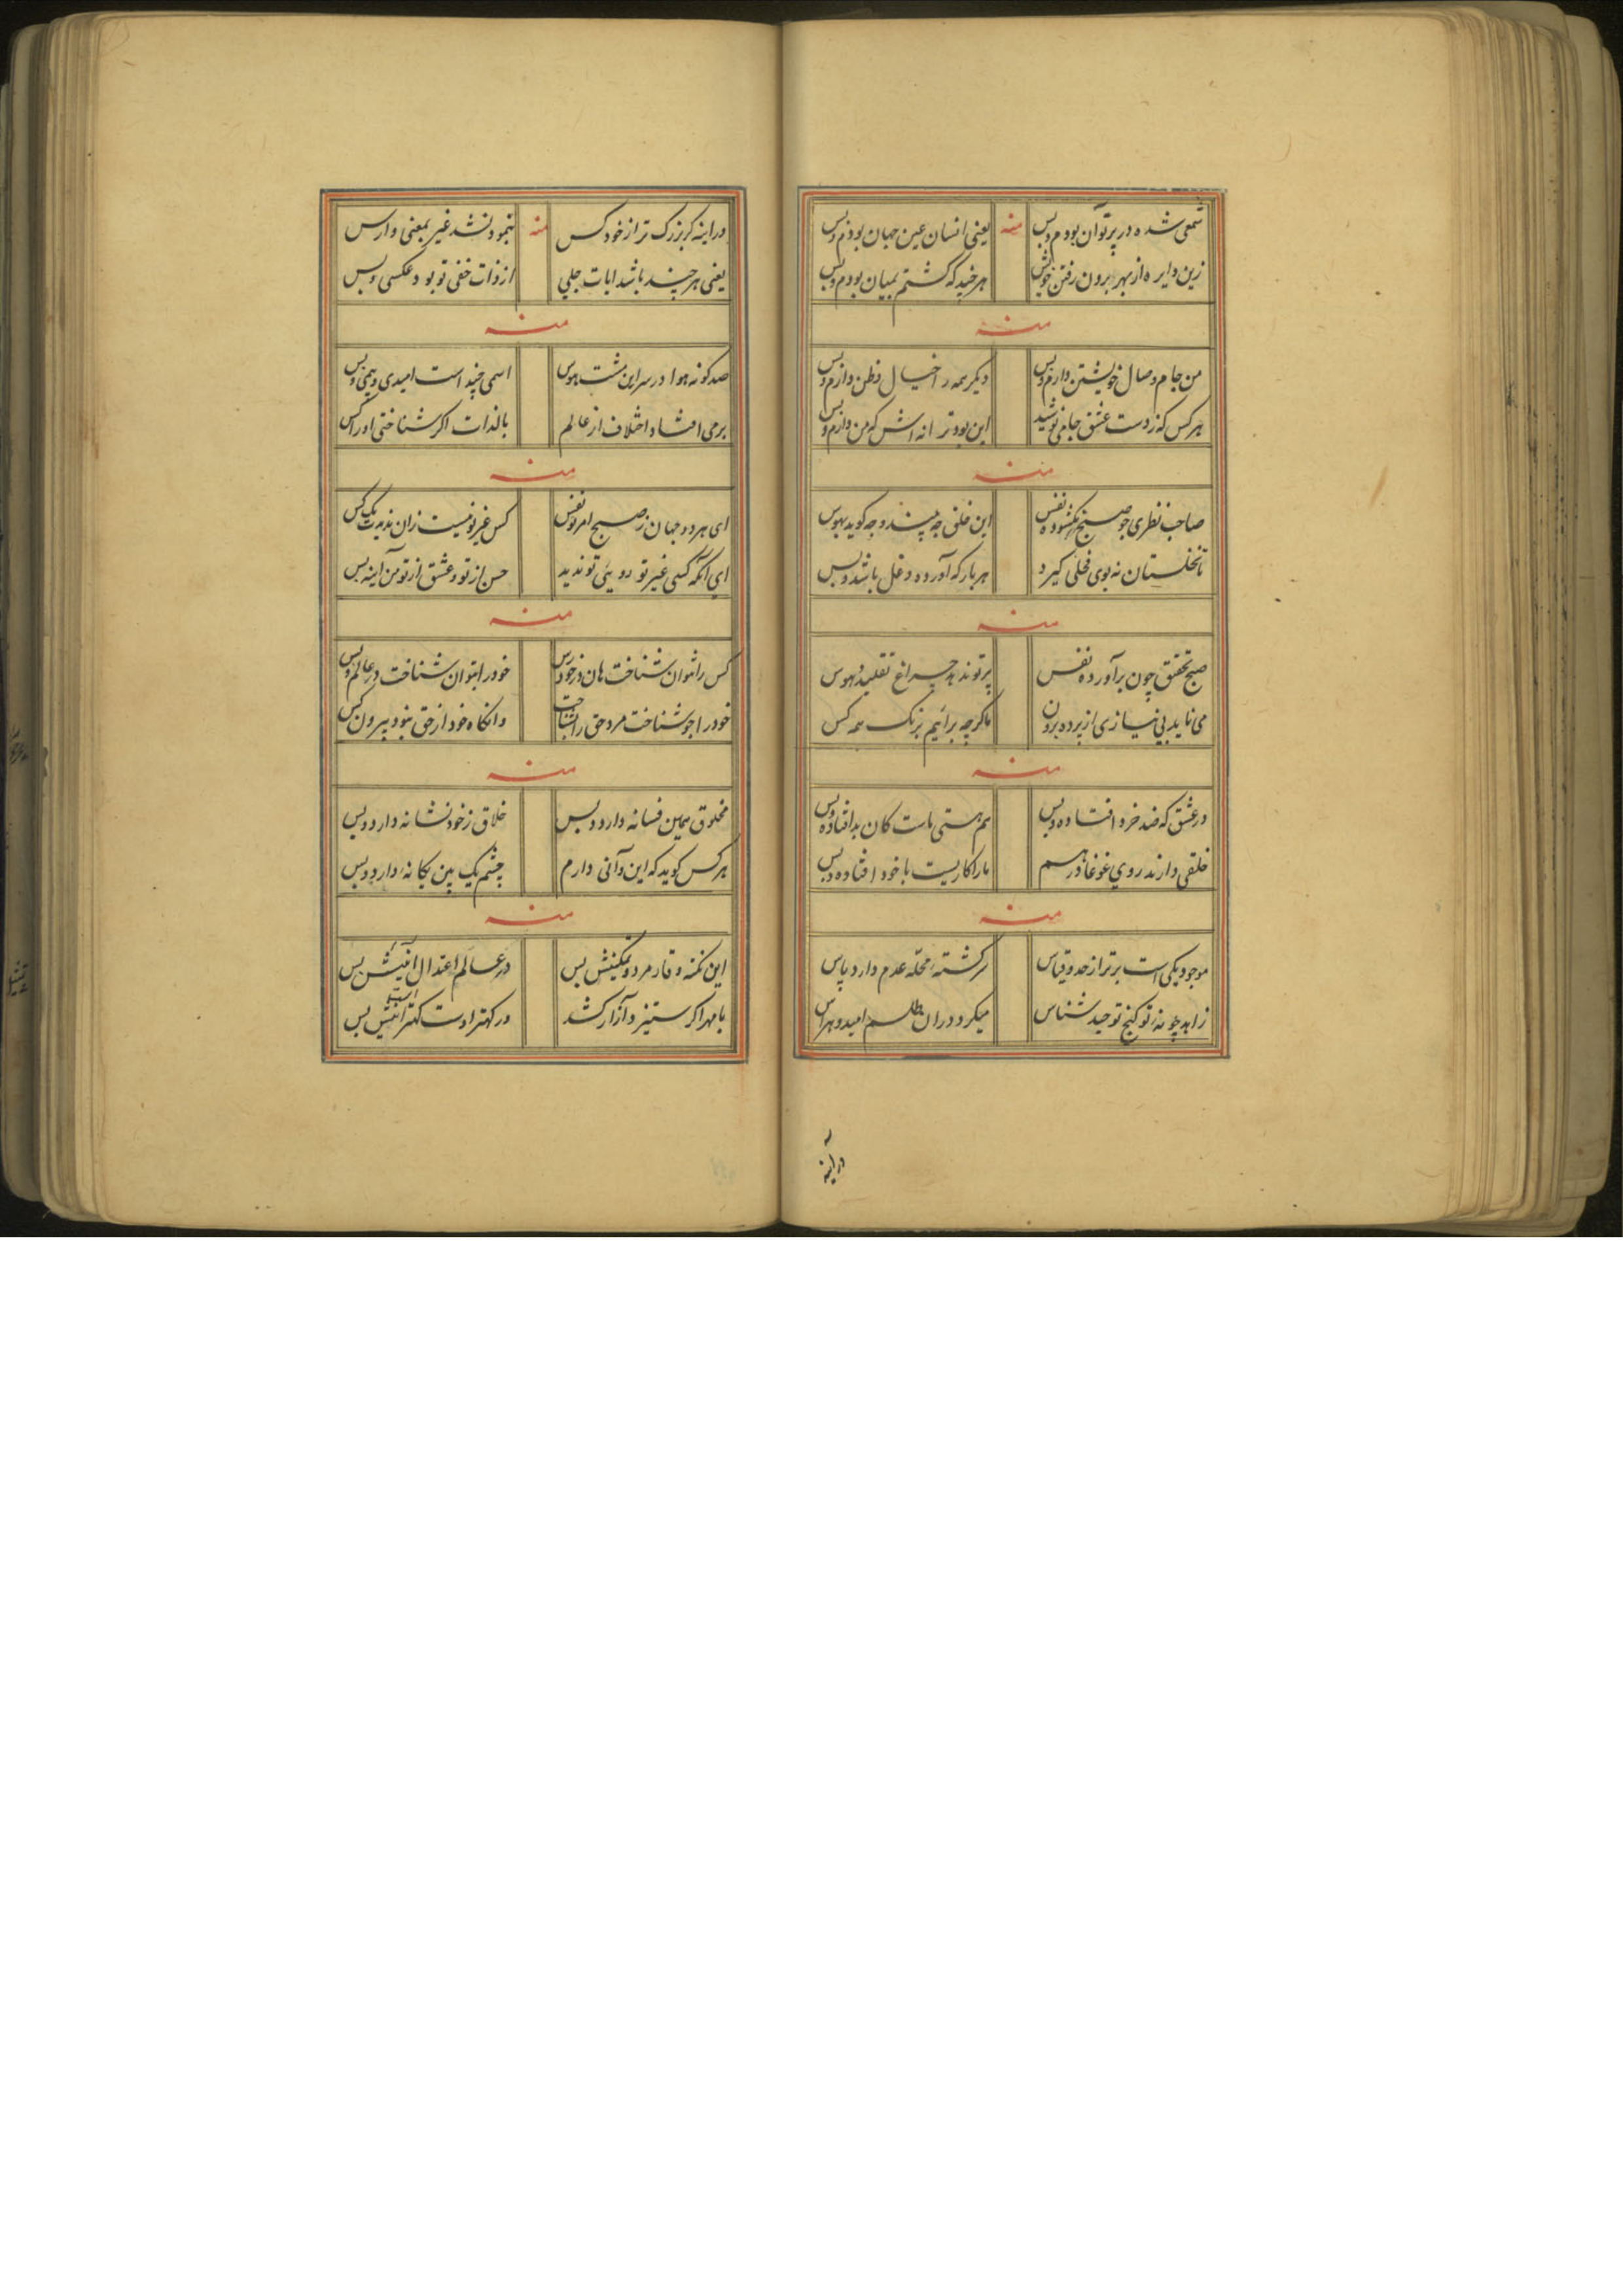 شمعی شده در پرتو آن بودم و بس منه یعنی انسان عین جهان بودم و بس
زین دایره از بهر برون رفتن خویش هر چند که گشتم بمیان بودم و بس
منه
من جام وصال خویشتن دارم و بس دیگر همه را خیال و ظن دارم و بس
هر کس که ز دست عشق جامی نوشید این بود ترانه اش که من دارم و بس
منه
صاحب نظری جو صبح نگشوده نفس این خلق چه بیند و چه کوید بهوس
تا نخلستان نه بوی نخلی کیرد هر بار که آورده دغل باشد و بس
منه
صبح تحقیق چون برآورده نفس پرتو ندهد چراغ تقلید و هوس
می ناید بی نیازی از پرده برون ما کرچه برائیم برنک همه کس
منه
در عشق که ضد خرد افتاده و بس هم هستی ماست کان بد افتاده و بس
خلقی دارند روی غوغا در هم ما را کاریست با خود افتاده و بس
منه
موجود یکی است برتر از حد و قیاس سرکشته محله عدم دارد پاس
زاهد چو نه تو کنج توحید شناس میکرد در ان طلسم امید و هراس
در آینه
در اینه کر بزرک تر از خود کس منه ننمود نشد غیر بمعنی وارس
یعنی هر چند باشد ایات جلی از ذات خفی تو بود عکسی و بس
منه
صد کونه هوا در سر این مشت هوس اسمی چند است امیدی و بیمی و بس
برمی افتاد اختلاف از عالم بالذات اکر شناختی او را کس
منه
ای هر دو جهان ز صبح امر تو نفس کس غیر تو نیست زان ندیدت یک کس
ای آنکه کسی غیر تو روی تو ندید حسن از تو و عشق از تو من آینه بس
منه
کس را نتوان شناخت هان در خود رس خود را بتوان شناخت در عالم و بس
خود را جو شناخت مرد حق را بشناخت وانکاه خود از حق نبود بیرون کس
منه
مخلوق همین فسانه دارد و بس خلاق ز خود نشانه دارد و بس
هر کس کوید که این و آنی دارم چشم یک بین یکانه دارد و بس
منه
این نکته وقار مرد و تمکینش بس در عالم اعتدال آئینش بس
با مهر اکر ستیز و آزار کشد ور کهتر اوست کهتر اینش بس